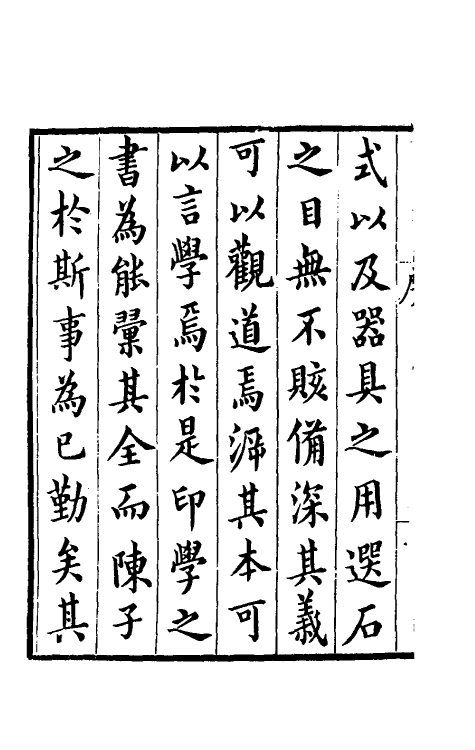 式以及器具之用選石
之目無不賅備深其義
可以觀道焉溯其本可
以言學焉於是印學之
書為能彙其全而陳子
之於斯事為已勤矣其